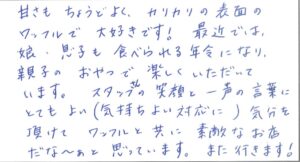 甘さも ちょうどよく、カリカリの表面の
ワッフルで 大好きです! 最近では、
娘・息子も 食べられる年令になり、
親子の おやつで 楽しくいただいて
います。 スタッフさんの笑顔と一声の言葉に
とてもよい(気持ちよい対応に)気分を
頂けて ワッフルと共に 素敵なお店
だな〜ぁと 思っています。また行きます!